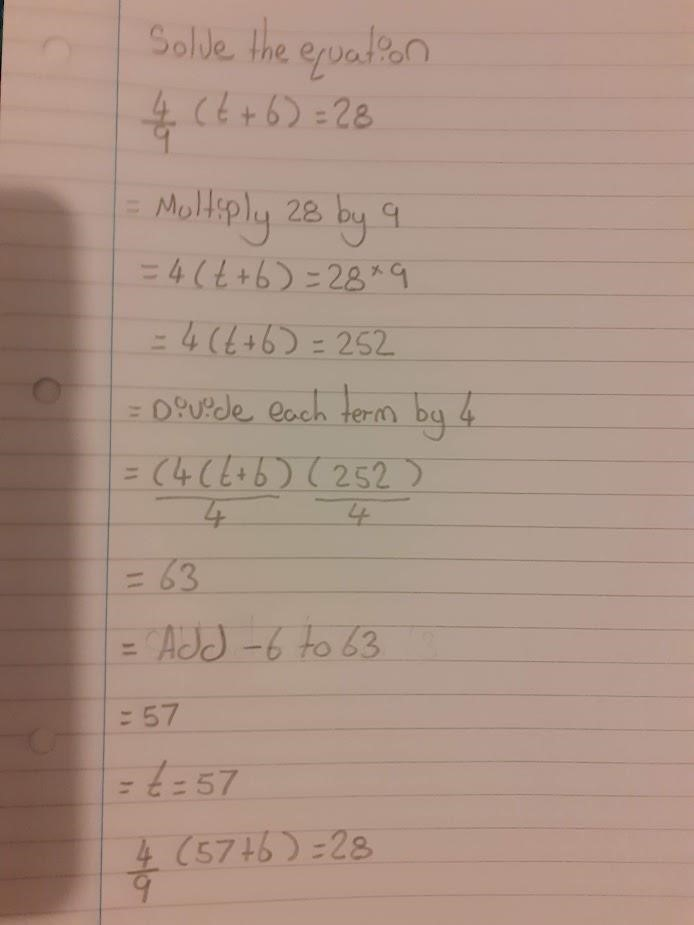 Solve the equation
4/9 (t+6) = 28
= Multiply 28 by 9
= 4(t+6) = 28×9
= 4(t+6) = 252
= Divide each term by 4
= (4(t+6)/4 (252)/4
= 63
= Add -6 to 63
= 57
= t = 57
4/9 (57+6) = 28